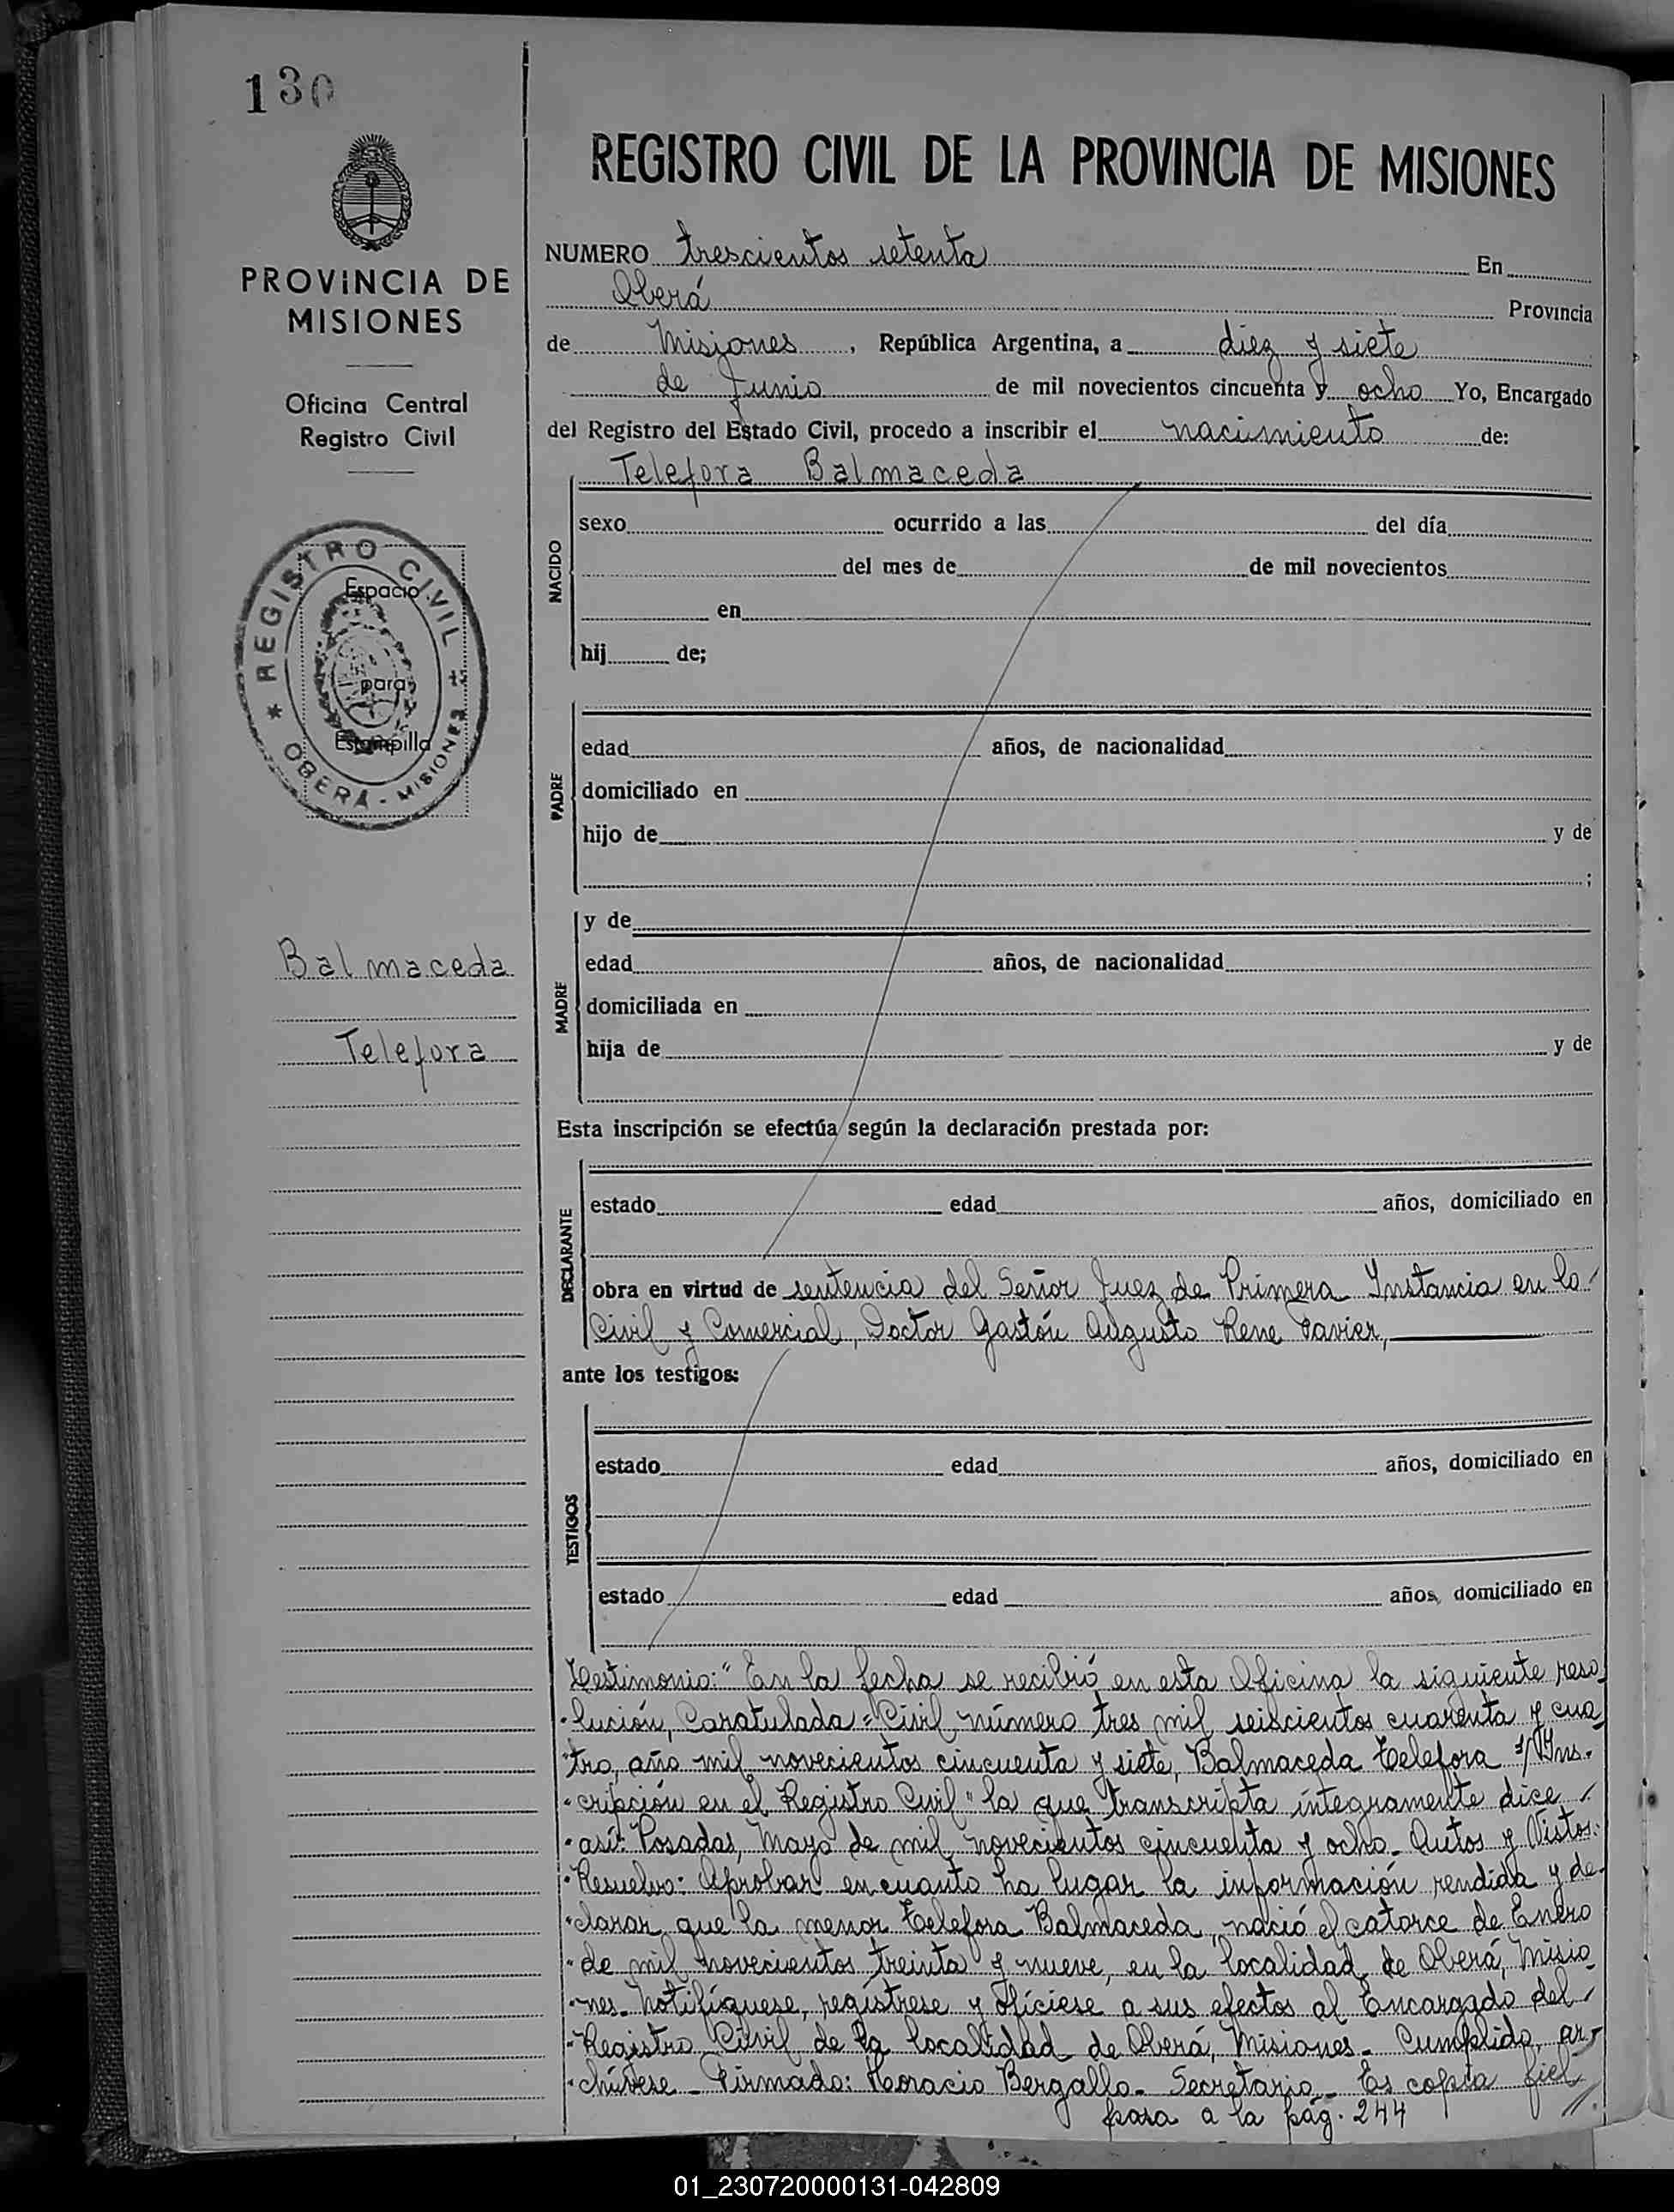 130
PROVINCIA DE
MISIONES
Oficina Central
Registro Civil
REGISTRO CIVIL
Espacio
para
Estampilla
* OBERÁ - MISIONES *
Balmaceda
Telefora
REGISTRO CIVIL DE LA PROVINCIA DE MISIONES
NUMERO trescientos setenta En
Oberá Provincia
de Misiones, República Argentina, a diez y siete
de Junio de mil novecientos cincuenta y ocho Yo, Encargado
del Registro del Estado Civil, procedo a inscribir el nacimiento de:
Telefora Balmaceda
NACIDO
sexo ocurrido a las del día
del mes de de mil novecientos
en
hij de;
PADRE
edad años, de nacionalidad
domiciliado en
hijo de y de
;
MADRE
y de
edad años, de nacionalidad
domiciliada en
hija de y de
Esta inscripción se efectúa según la declaración prestada por:
DECLARANTE
estado edad años, domiciliado en
obra en virtud de sentencia del Señor Juez de Primera Instancia en lo
Civil y Comercial, Doctor Gastón Augusto Rene Pavier,
ante los testigos:
TESTIGOS
estado edad años, domiciliado en
estado edad años, domiciliado en
Testimonio: "En la fecha se recibió en esta Oficina la siguiente reso
"lución, Caratulada = Civil, número tres mil seiscientos cuarenta y cua
"tro, año mil novecientos cincuenta y siete, Balmaceda Telefora s/ Ins-
"cripción en el Registro Civil" la que transcripta íntegramente dice
"así: Posadas, Mayo de mil novecientos cincuenta y ocho. Autos y Vistos:
"Resuelvo: Aprobar en cuanto ha lugar la información rendida y de-
"clarar que la menor Telefora Balmaceda, nació el catorce de Enero
"de mil novecientos treinta y nueve, en la localidad de Oberá, Misio
"nes. Notifíquese, regístrese y ofíciese a sus efectos al Encargado del
"Registro Civil de la localidad de Oberá, Misiones. Cumplido, ar-
"chívese. Firmado: Horacio Bergallo. Secretario. Es copia fiel
pasa a la pág. 244
01_230720000131-042809